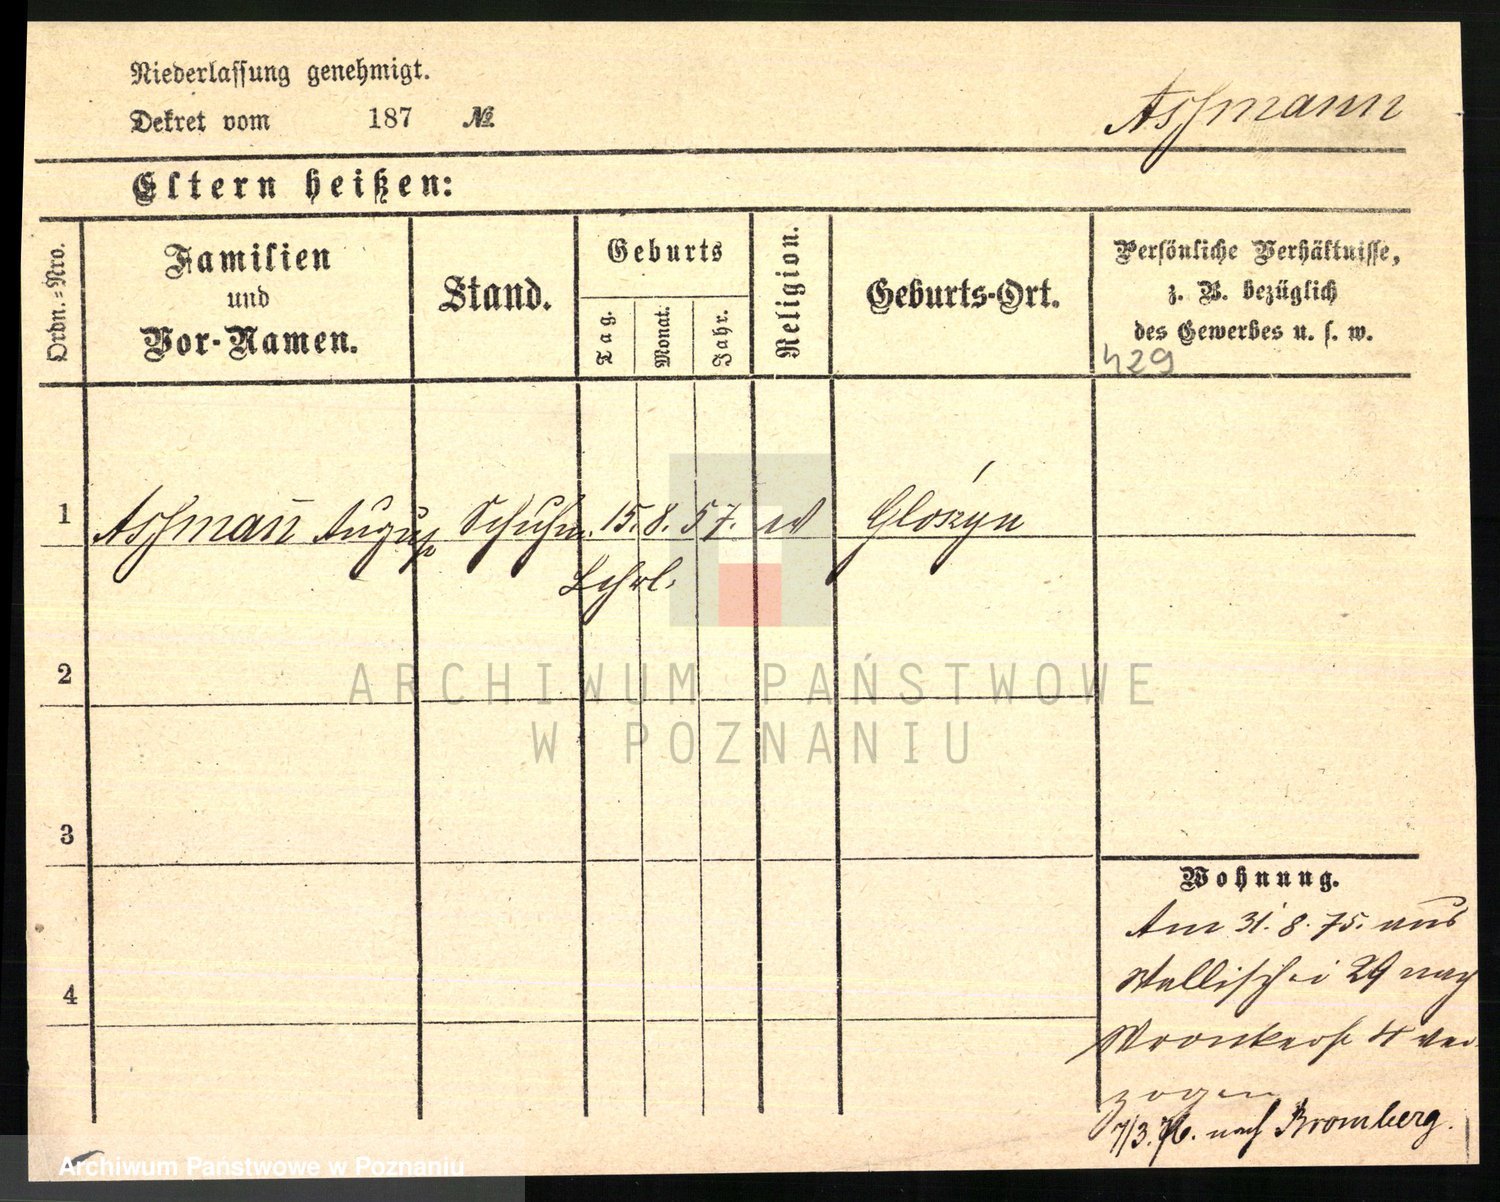 Niederlassung genehmigt.
Dekret vom 187 №
Assmann
Eltern heißen:
Ordn.=Nro.
Familien
und
Vor-Namen.
Stand.
Geburts
Tag.
Monat.
Jahr.
Religion.
Geburts-Ort.
Persönliche Verhältnisse,
z. B. bezüglich
des Gewerbes u. s. w.
429
1 Assmañ August Schuhm. 15. 8. 57. ev
Lehrl.
2
ARCHIWUM PAŃSTWOWE
W POZNANIU
3
4
Wohnung.
Am 31. 8. 75. aus
Wallischei 29 nach
Wronkerstr 4 ver-
zogen
7/3. 76. nach Bromberg.
Archiwum Państwowe w Poznaniu